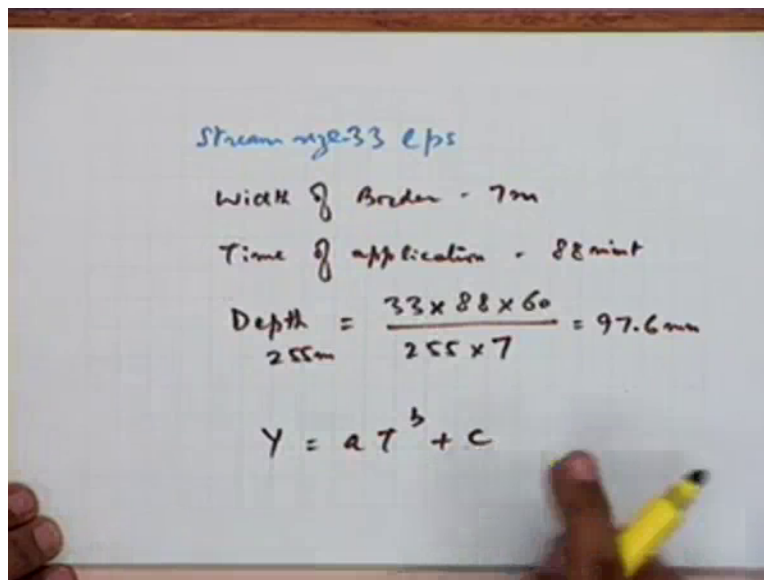 Stream size-33 lps
Width of Border - 7m
Time of application - 88 mint
Depth = 33 x 88 x 60 = 97.6 mm
255m 255 x 7
Y = a T^b + c